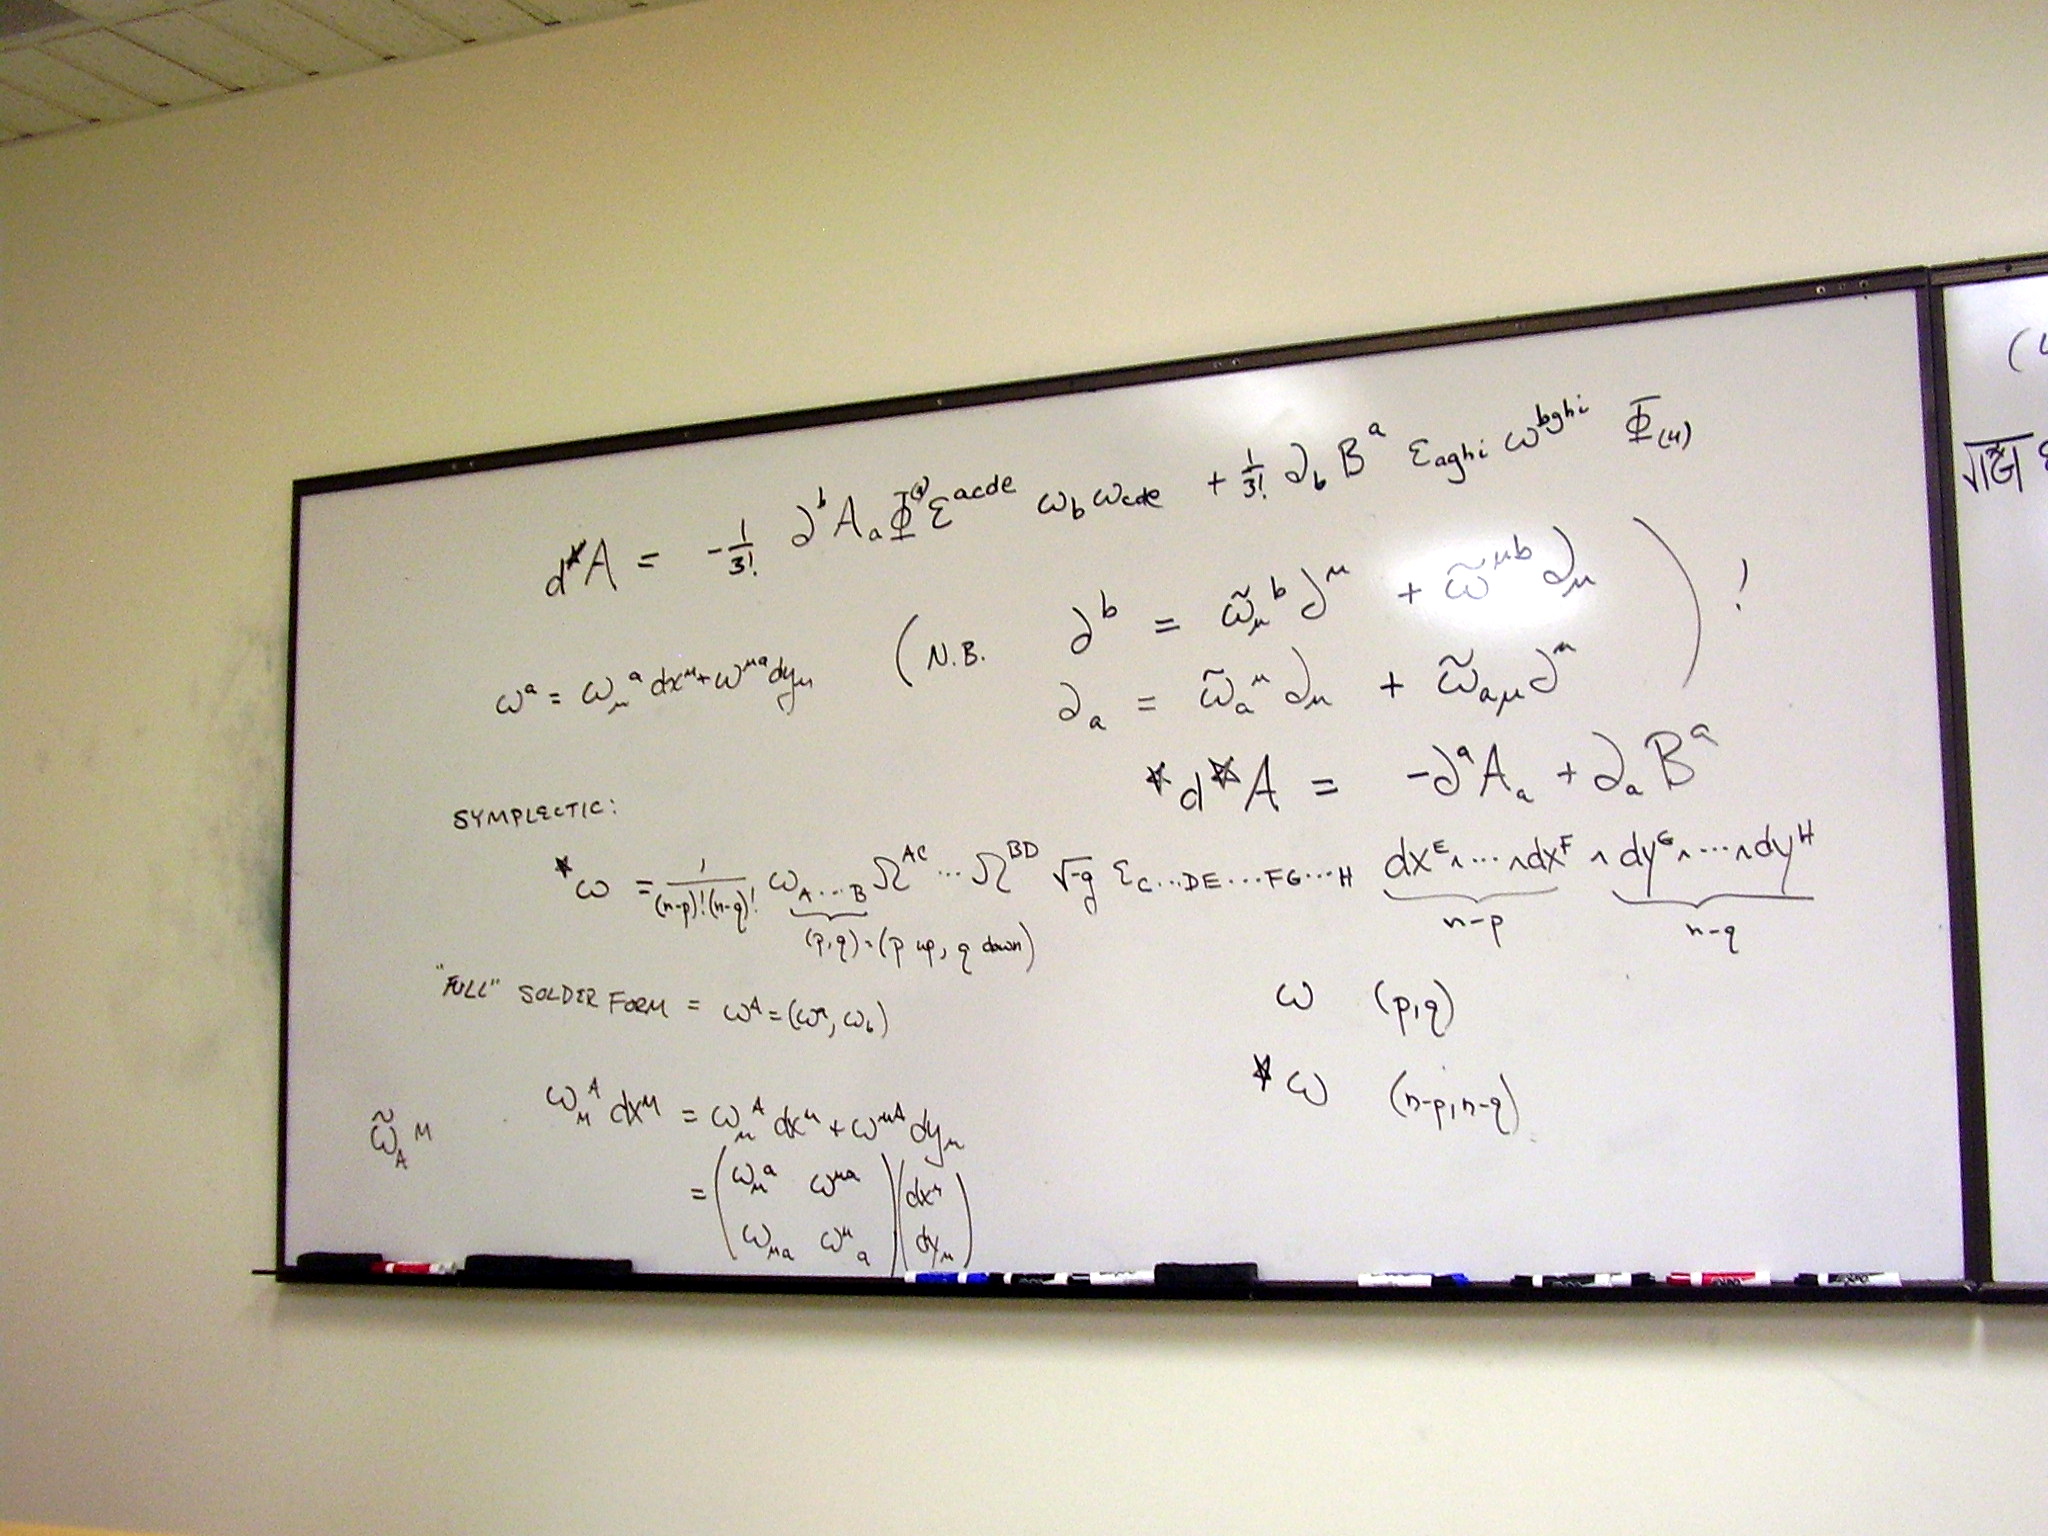 d*A = -1/3! ∂^b A_a Φ^(4) ε^acde ω_b ω_cde + 1/3! ∂_b B^a ε_aghi ω^bghi Φ_(4)
ω^a = ω_μ^a dx^μ + ω^μa dy_μ
(N.B. ∂^b = ω̃_μ^b ∂^μ + ω̃^μb ∂_μ
∂_a = ω̃_a^μ ∂_μ + ω̃_aμ ∂^μ ) !
*d*A = -∂^a A_a + ∂_a B^a
SYMPLECTIC:
*ω = 1/(n-p)!(n-q)! ω_A...B Ω^AC ... Ω^BD √-g ε_C...DE...FG...H dx^E ∧ ... ∧ dx^F ∧ dy^G ∧ ... ∧ dy^H
(p,q) = (p up, q down)
n-p
n-q
"FULL" SOLDER FORM = ω^A = (ω^a, ω_b)
ω (p,q)
*ω (n-p, n-q)
ω̃_A^M
ω_M^A dx^M = ω_μ^A dx^μ + ω^μA dy_μ
= ( ω_μ^a ω^μa ) ( dx^μ )
( ω_μa ω^μ_a ) ( dy_μ )